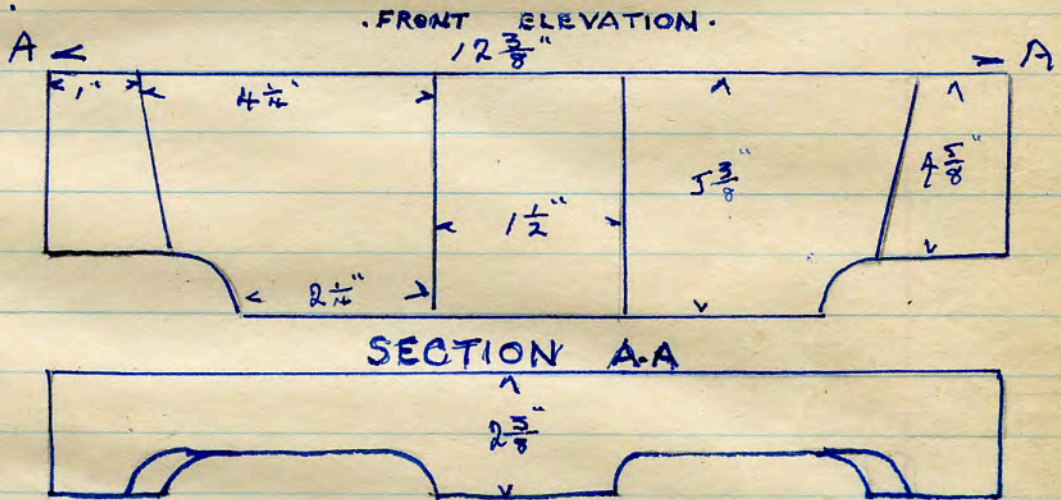 . FRONT ELEVATION .
A 12 3/8" A
1" 4 1/4"
5 3/8" 4 5/8"
1 1/2"
2 1/4"
SECTION A-A
2 3/8"